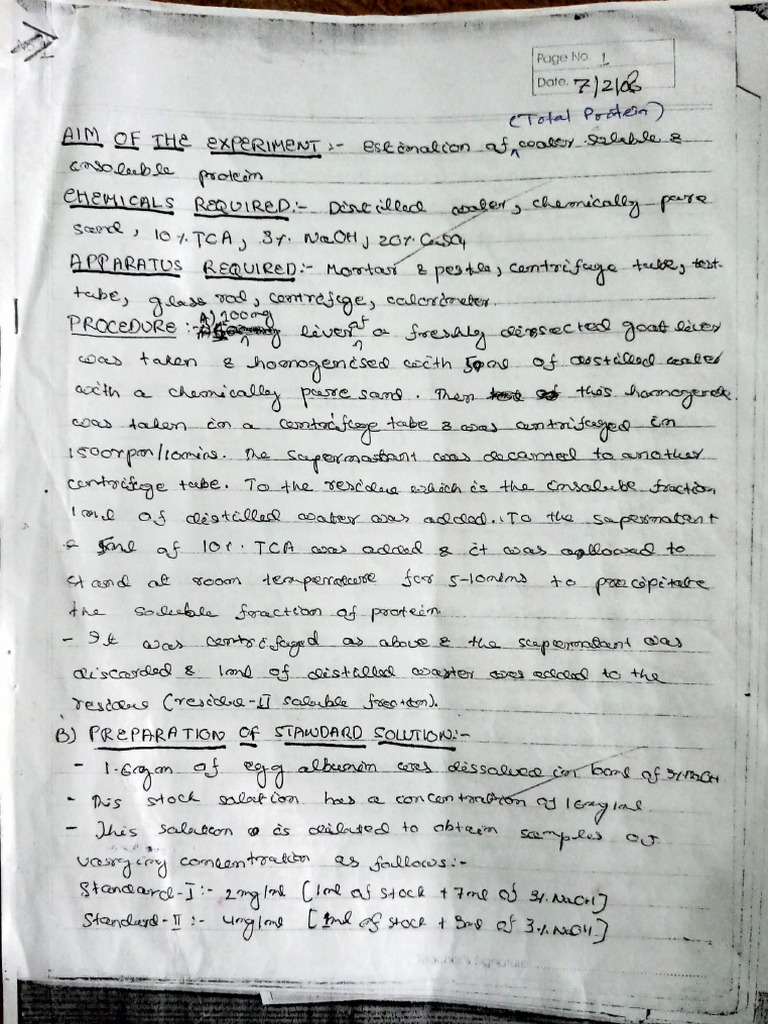 Page No. 1
Date. 7/2/08
(Total Protein)
AIM OF THE EXPERIMENT :- Estimation of water soluble &
insoluble protein
CHEMICALS REQUIRED:- Distilled water, chemically pure
sand, 10%.TCA, 3%. NaOH, 20%. CuSO4
APPARATUS REQUIRED:- Mortar & pestle, centrifuge tube, test
tube, glass rod, centrifuge, calorimeter.
PROCEDURE :- A) 100mg liver of a freshly dissected goat liver
was taken & homogenised with 5ml of distilled water
with a chemically pure sand. Then this homogenate
was taken in a centrifuge tube & was centrifuged in
1500rpm/10mins. The supernatant was decanted to another
centrifuge tube. To the residue which is the insoluble fraction
1ml of distilled water was added. To the supernatant
5ml of 10%. TCA was added & it was allowed to
stand at room temperature for 5-10mins to precipitate
the soluble fraction of protein
- It was centrifuged as above & the supernatant was
discarded & 1ml of distilled water was added to the
residue (residue-II soluble fraction).
B) PREPARATION OF STANDARD SOLUTION:-
- 1.6gm of egg albumin was dissolved in of 3%.NaOH
- This stock solution has a concentration of 16mg/ml
- This solution is diluted to obtain samples of
varying concentration as follows:-
Standard-I:- 2mg/ml [1ml of stock + 7ml of 3%. NaOH]
Standard-II :- 4mg/ml [1ml of stock + 3ml of 3%. NaOH]
Teacher's Signature